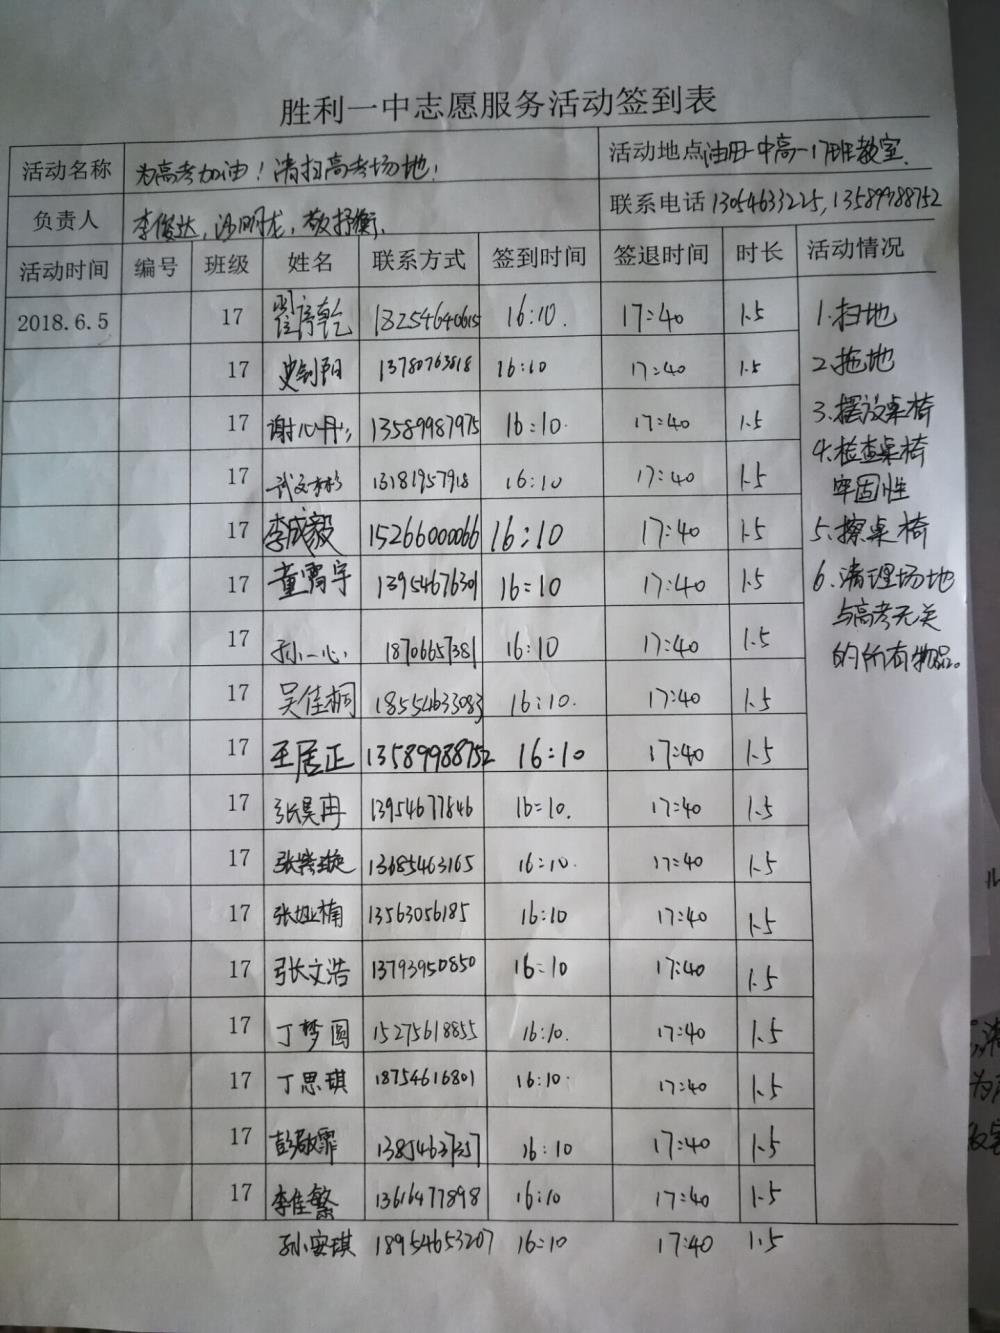 胜利一中志愿服务活动签到表
活动名称 为高考加油！清扫高考场地！ 活动地点 油田一中高一17班教室.
负责人 李俊达, 沙明龙, 敬抒衡. 联系电话 13054633225, 13589988752
活动时间 编号 班级 姓名 联系方式 签到时间 签退时间 时长 活动情况
2018.6.5 17 13254640615 16:10. 17:40 1.5 1.扫地
17 史剑阳 13780763818 16:10 17:40 1.5 2.拖地
17 谢心彤 13589987975 16:10. 17:40 1.5 3.摆放桌椅
17 武文彬 13181957918 16:10 17:40 1.5 4.检查桌椅
牢固性
17 李成毅 15266000066 16:10 17:40 1.5 5.擦桌椅
17 董霄宇 13954676301 16:10 17:40 1.5 6.清理场地
与高考无关
17 孙一心 18706657381 16:10 17:40 1.5 的所有物品。
17 吴佳桐 18554633083 16:10. 17:40 1.5
17 王居正 13589988752 16:10 17:40 1.5
17 张昊冉 13954677846 16:10. 17:40 1.5
17 张紫璇 13685463165 16:10. 17:40 1.5
17 张娅楠 13563056185 16:10 17:40 1.5
17 张文浩 13793950850 16:10 17:40 1.5
17 丁梦圆 15275618855 16:10. 17:40 1.5
17 丁思琪 18754616801 16:10. 17:40 1.5
17 彭敬霏 13854637357 16:10 17:40 1.5
17 李佳繁 13616477898 16:10 17:40 1.5
孙安琪 18954653207 16:10 17:40 1.5